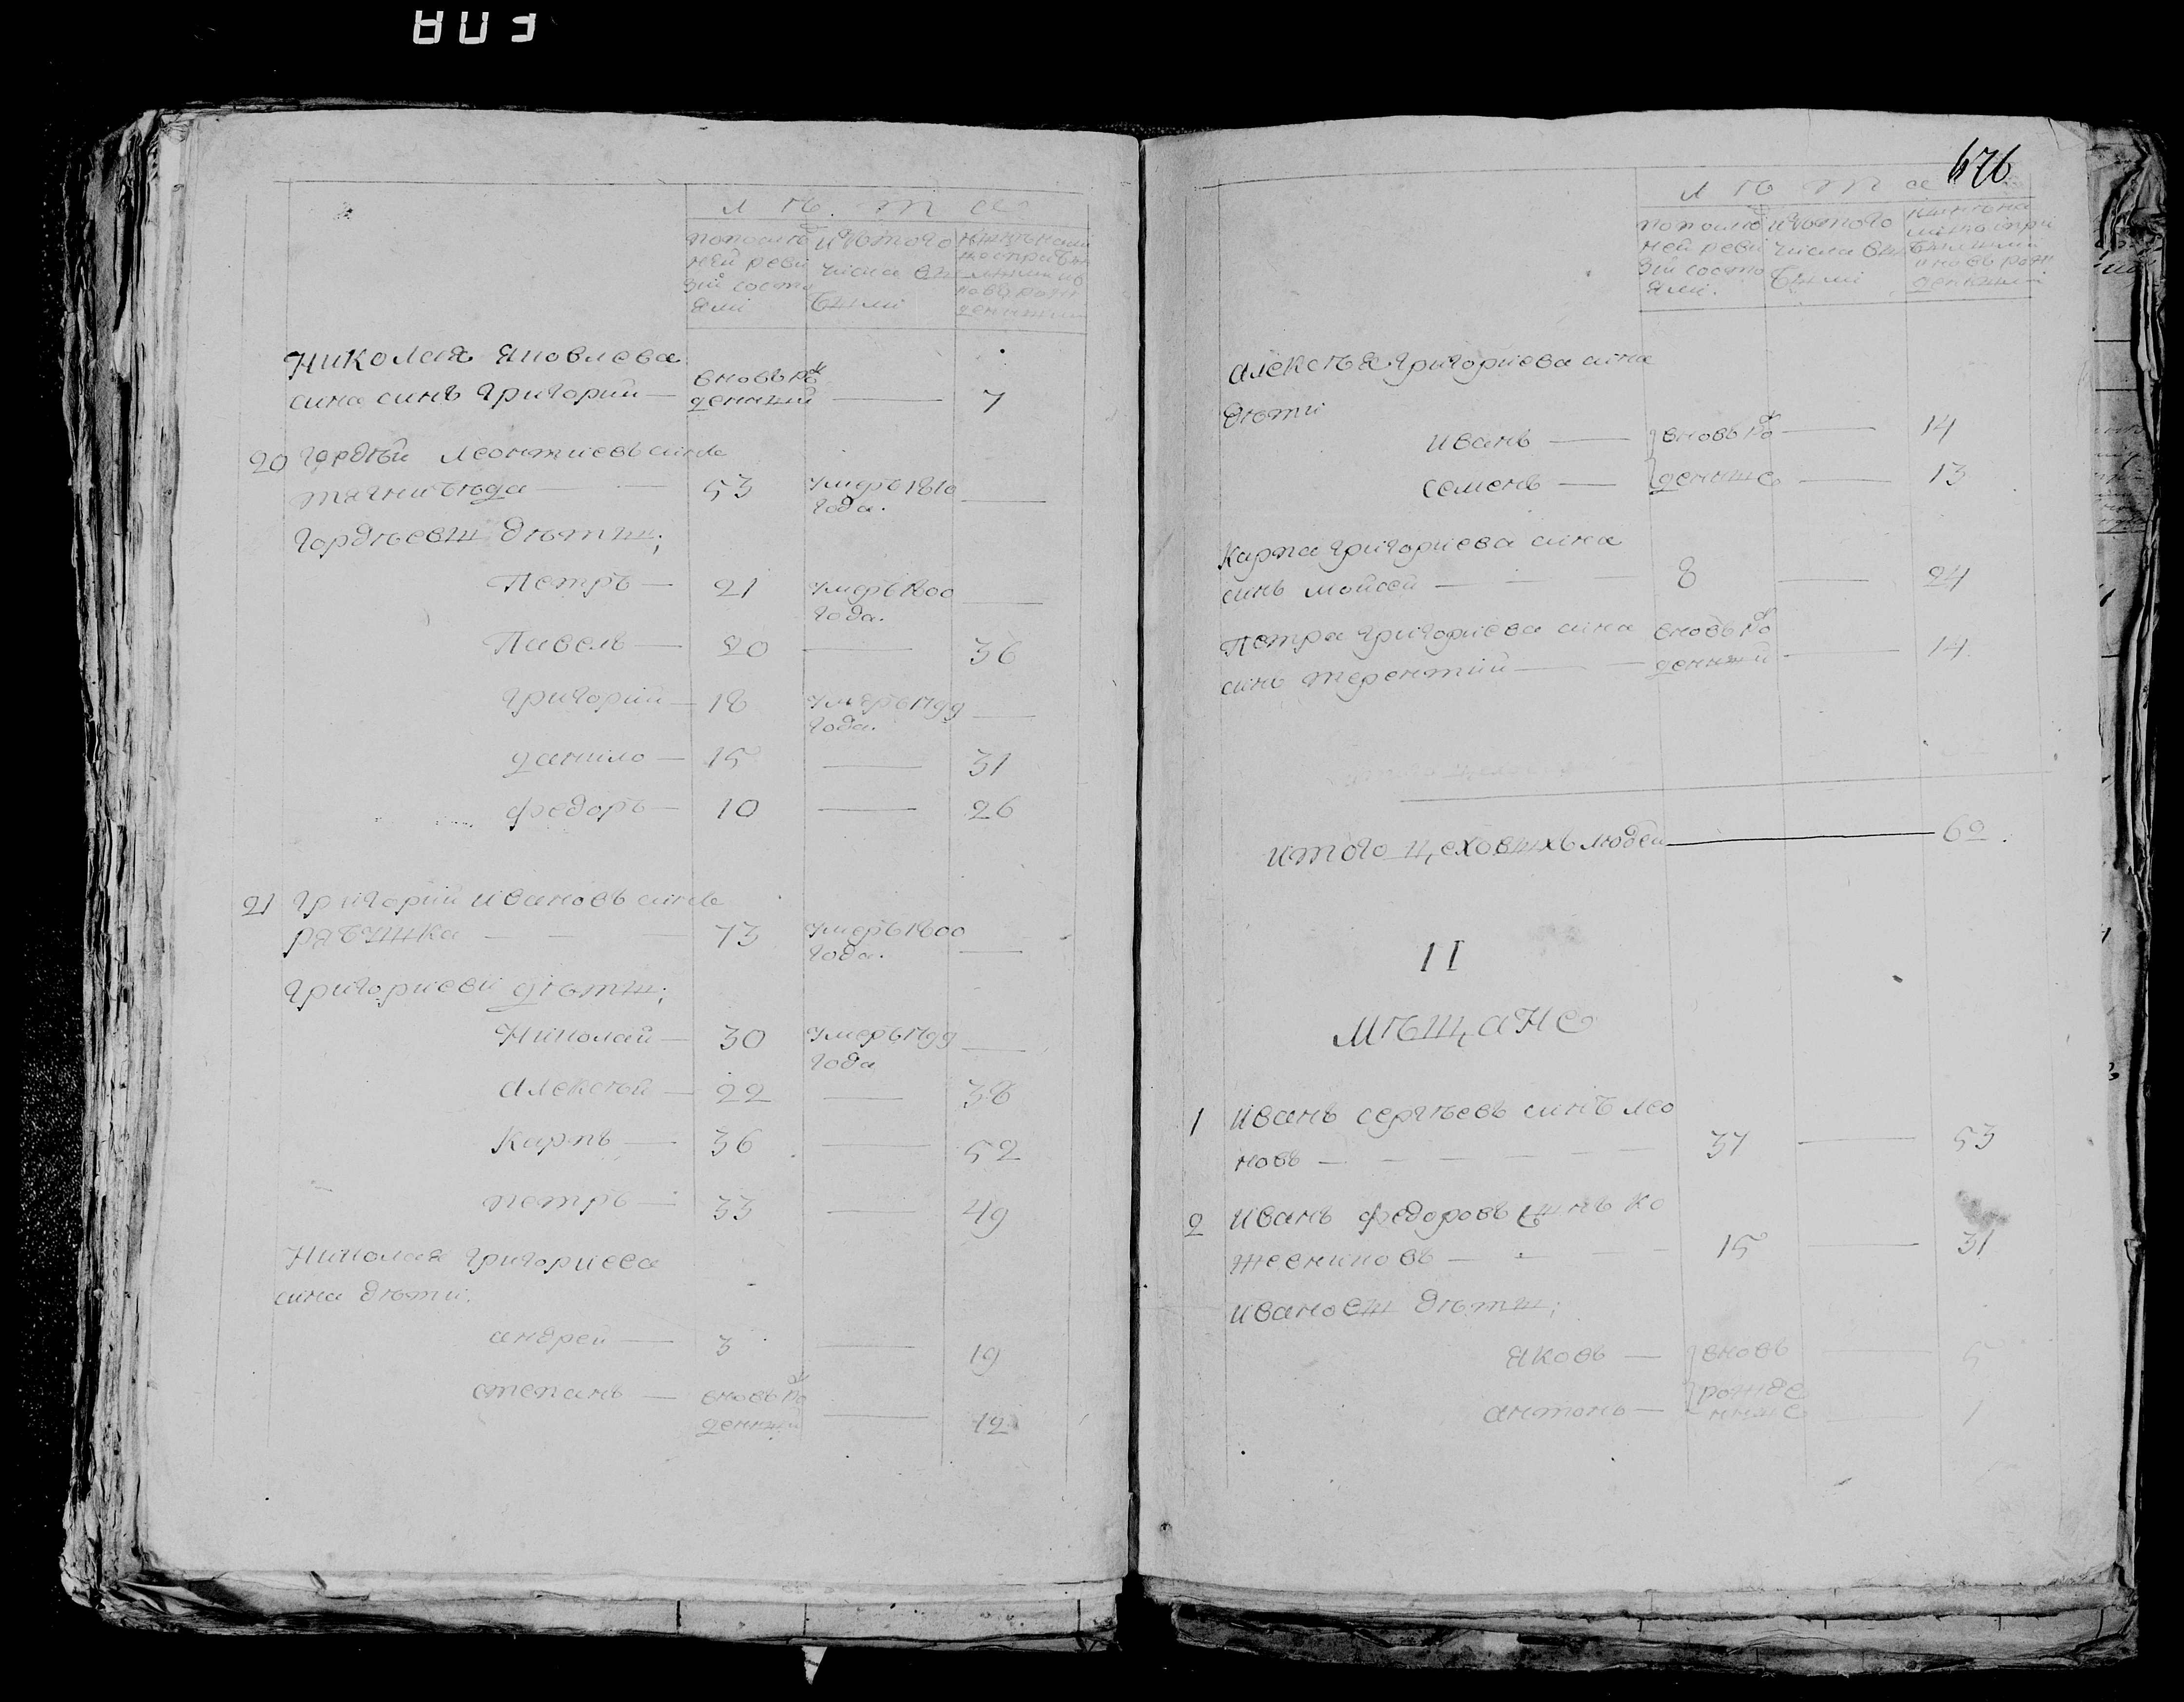 ЛѢТА
попослѣд
ней реви
зіи состо
яли
исъ того
числа вы
были
Николая Яковлева
сина синъ Григорий — вновьрож
денный — 7
20 Гордѣй Леонтиевъ синъ
тягнибѣда — 53 умеръ 1810
года. —
Гордѣевы дѣты;
Петръ — 21 умеръ 1800
года. —
Павелъ — 20 — 36
Григорий — 18 умеръ 1799
года. —
Данило — 15 — 31
Федоръ — 10 — 26
21 Григорий Ивановъ синъ
рябушка — 73 умеръ 1800
года. —
Григориеви дѣты;
Николай — 30 умеръ 1799
года —
Алексѣй — 22 — 38
Карпъ — 36 — 52
Петръ — 33 — 49
Николая Григориева
сина дѣти.
андрей — 3 — 19
степанъ — вновьрож
денный — 12
676
ЛѢТА
попослѣд
ней реви
зіи состо
яли.
исъ того
числа вы
были
Алексѣя Григориева сина
дѣти
иванъ — вновьрож — 14
семенъ — денные — 13
Карпа Григориева сина
синъ мойсей — 8 — 24
Петра Григориева сина вновьрож
синъ терентий — денный — 14
Итого цеховыхъ людей — 60.
II
МѢЩАНЕ
1 Иванъ сергѣевъ синъ лео
новъ — 37 — 53
2 Иванъ федоровъ сынъ ко
жевниковъ — 15 — 31
Ивановы дѣты;
Яковъ — вновь — 5
рожде
антонъ — нные — 1